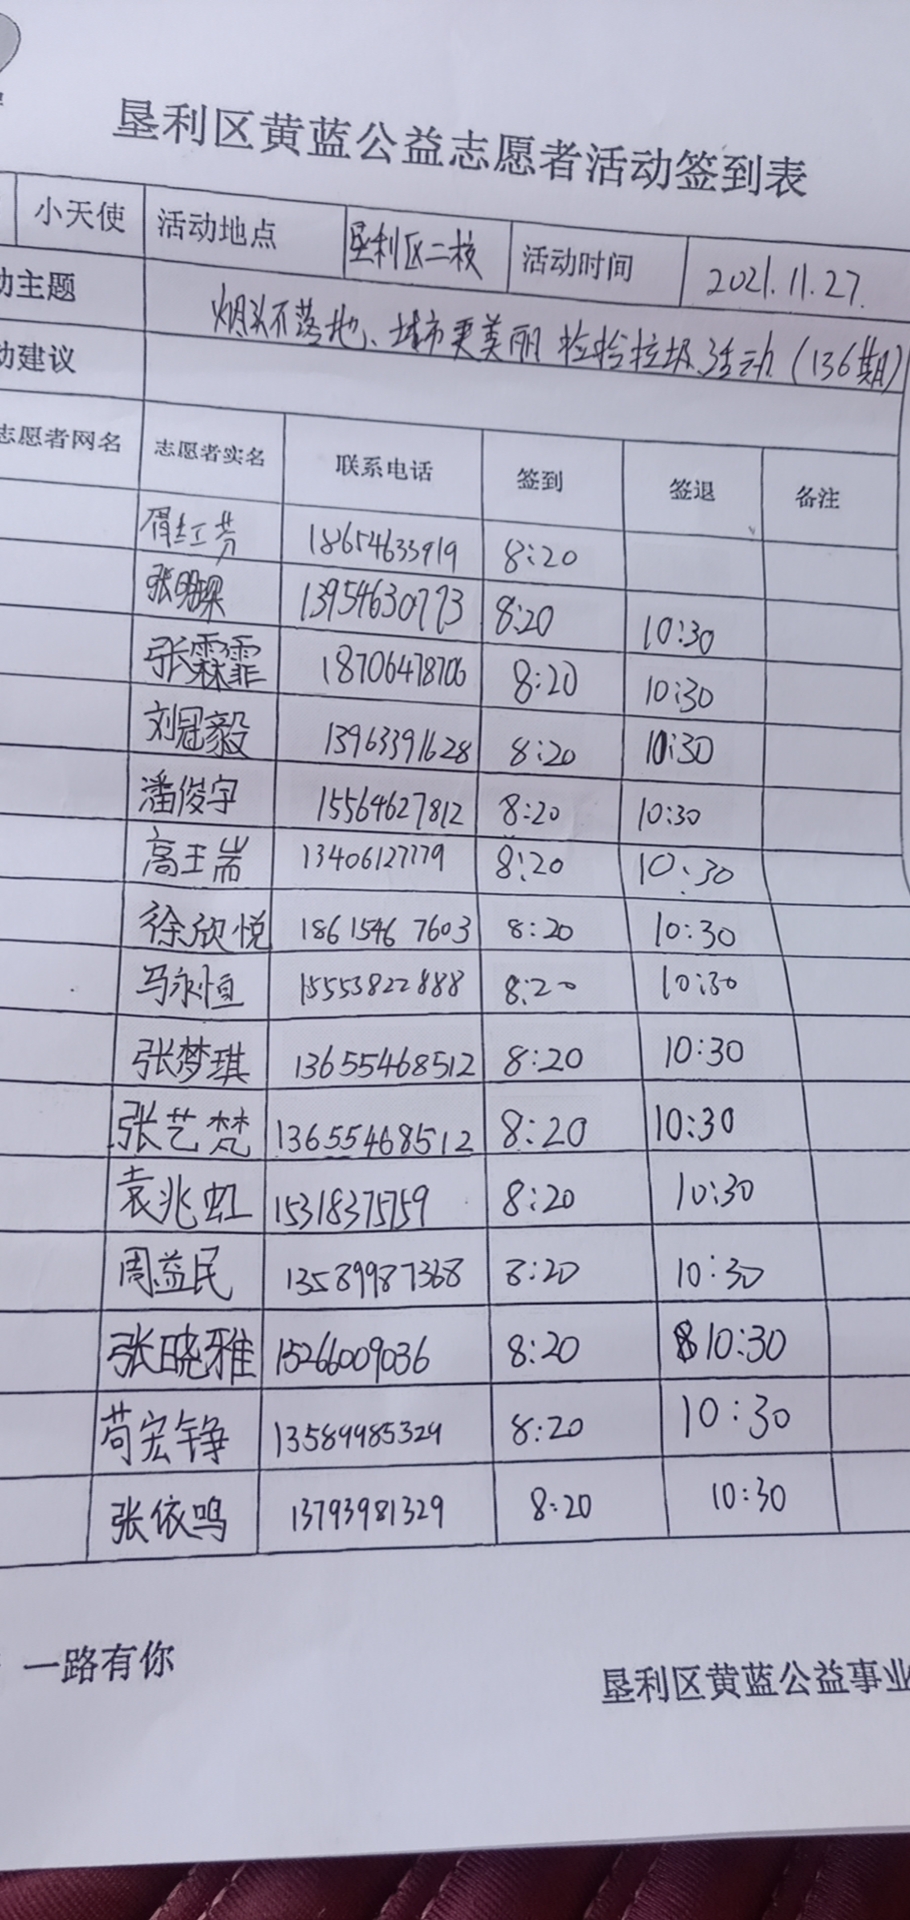 垦利区黄蓝公益志愿者活动签到表
小天使 活动地点 垦利区二校 活动时间 2021.11.27.
动主题 烟头不落地、城市更美丽 捡拾垃圾活动（136期）
动建议
志愿者网名 志愿者实名 联系电话 签到 签退 备注
胥红芳 18654633919 8:20
张明璟 13954630773 8:20 10:30
张霖霏 18706478706 8:20 10:30
刘冠毅 13963391628 8:20 10:30
潘俊宇 15564627812 8:20 10:30
高王岽 13406127779 8:20 10:30
徐欣悦 18615467603 8:20 10:30
马永恒 15553822888 8:20 10:30
张梦琪 13655468512 8:20 10:30
张艺梵 13655468512 8:20 10:30
袁兆虹 15318375759 8:20 10:30
周益民 13589987368 8:20 10:30
张晓雅 15266009036 8:20 10:30
苟宏铮 13589985329 8:20 10:30
张依鸣 13793981329 8:20 10:30
一路有你
垦利区黄蓝公益事业